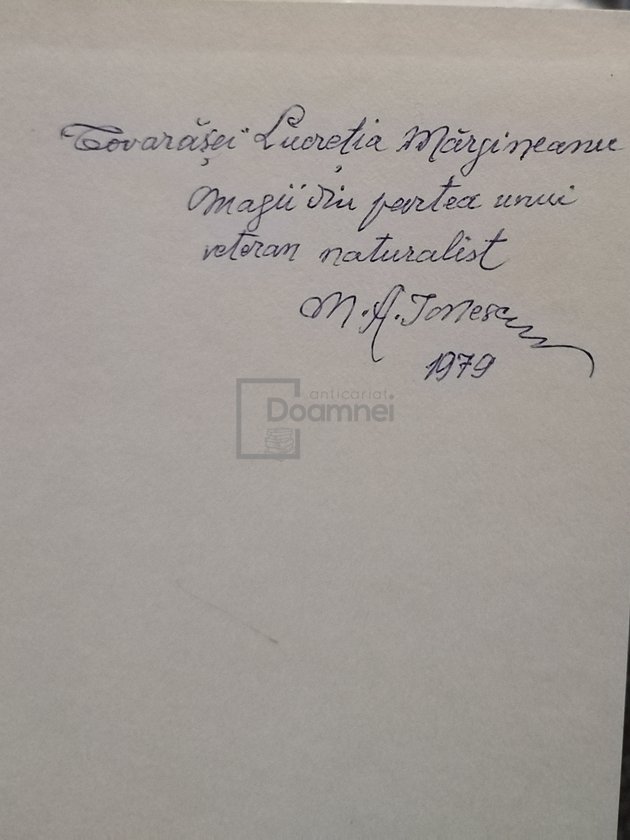 Tovarășei Lucreția Mărgineanu
Omagii din partea unui
veteran naturalist
M. A. Ionescu
1979
anticariat
Doamnei